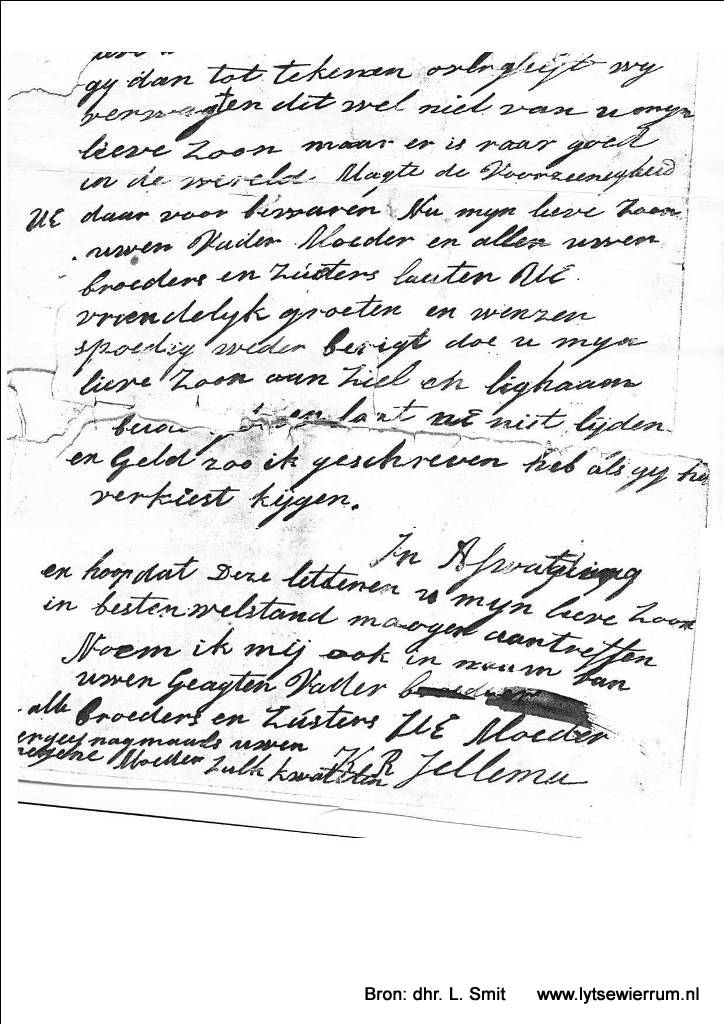 gy dan tot tekenen overgleijt wy
verwagten dit wel niet van u myn
lieve Zoon maar er is raar goed
in de wereld. Magte de Voorzeenigheid
UE daar voor bewaren Nu myn lieve Zoon
uwen Vader Moeder en allen uwen
broeders en Zusters laaten UE
vriendelyk groeten en wenzen
spoedig weder berigt doe u myn
lieve Zoon aan Ziel en lighaam
laat UE niet lyden
en Geld zoo ik geschreven heb als gy het
verkiest kijgen.
In Afwagting
en hoop dat Deze letteren u myn lieve Zoon
in besten welstand moogen aantreffen
Noem ik mij ook in naam van
uwen Geagten Vader
alle broeders en Zusters UE Moeder
nogmaals uwen
Moeder Zulk K R Jellema
Bron: dhr. L. Smit www.lytsewierrum.nl